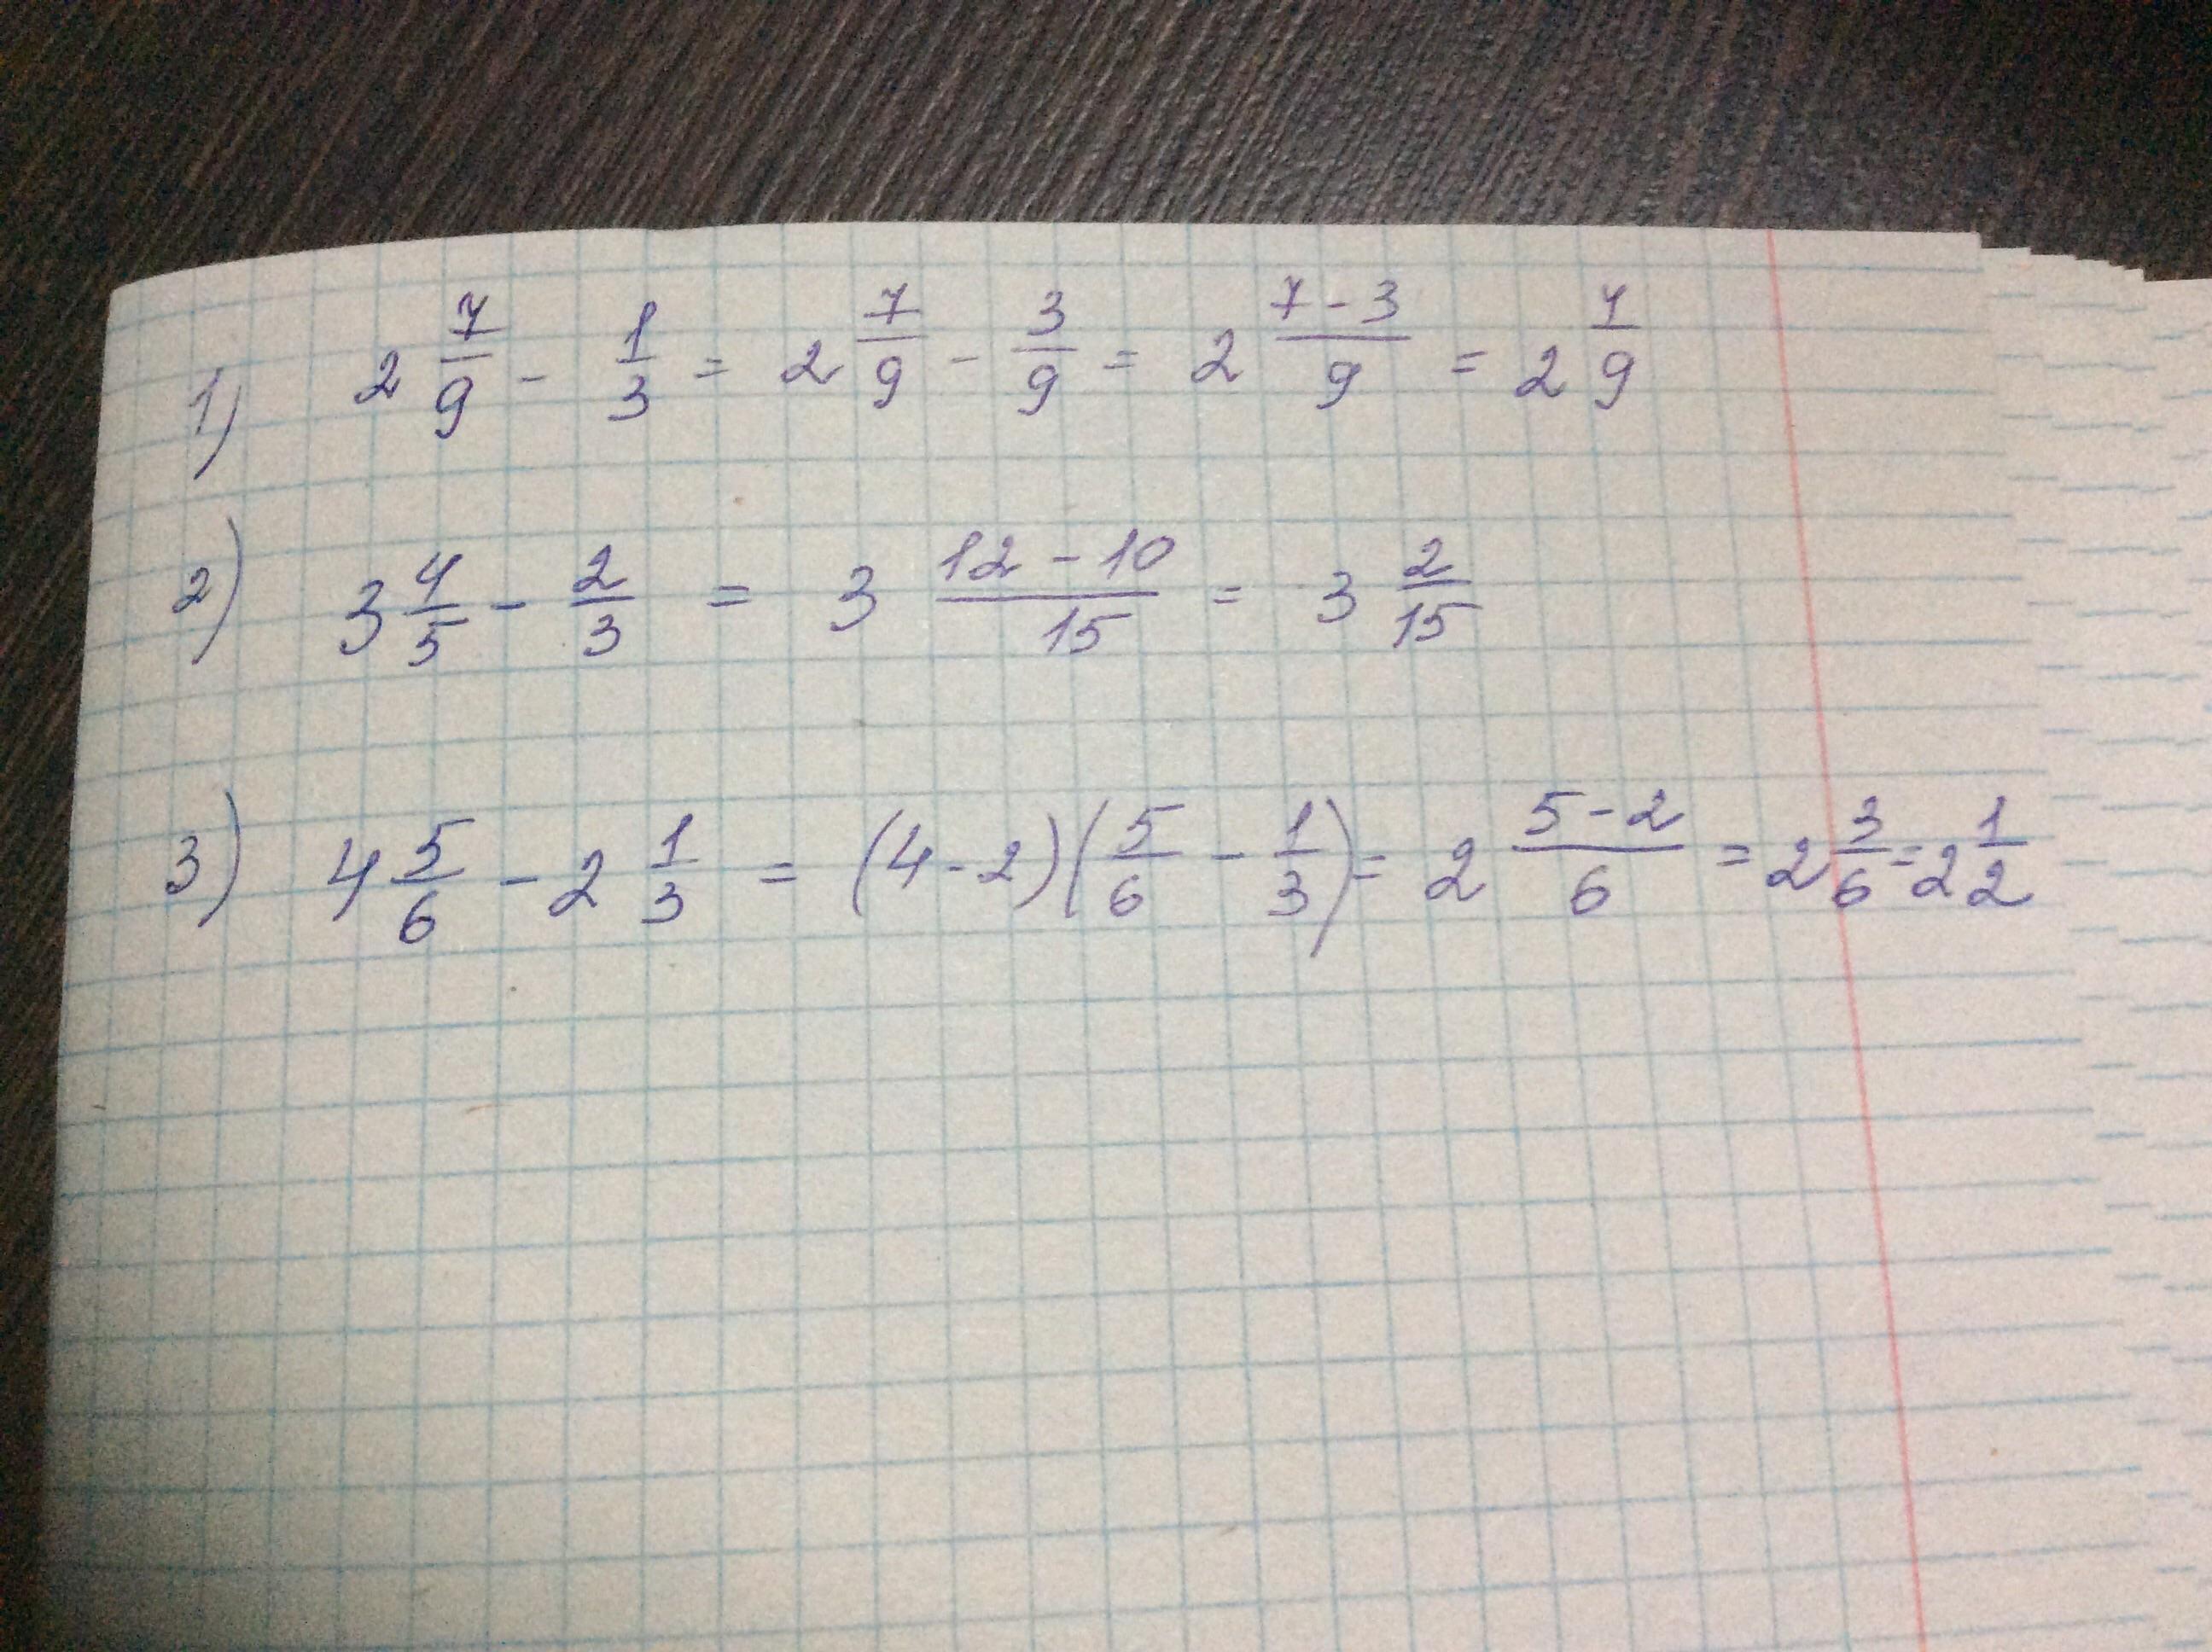 1) 2 7/9 - 1/3 = 2 7/9 - 3/9 = 2 (7-3)/9 = 2 4/9
2) 3 4/5 - 2/3 = 3 (12-10)/15 = 3 2/15
3) 4 5/6 - 2 1/3 = (4-2)(5/6 - 1/3) = 2 (5-2)/6 = 2 3/6 = 2 1/2